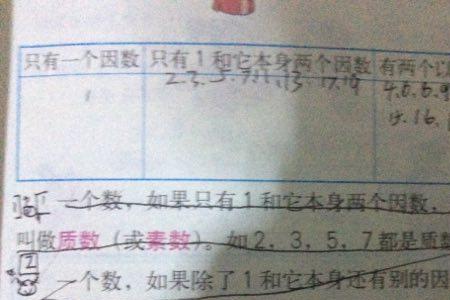 只有一个因数 只有1和它本身两个因数 有两个以
1 2.3.5.7.11.13.17.19 4.6.8.9
16.
一个数，如果只有1和它本身两个因数，
叫做质数（或素数）。如2，3，5，7都是质数
一个数，如果除了1和它本身还有别的因